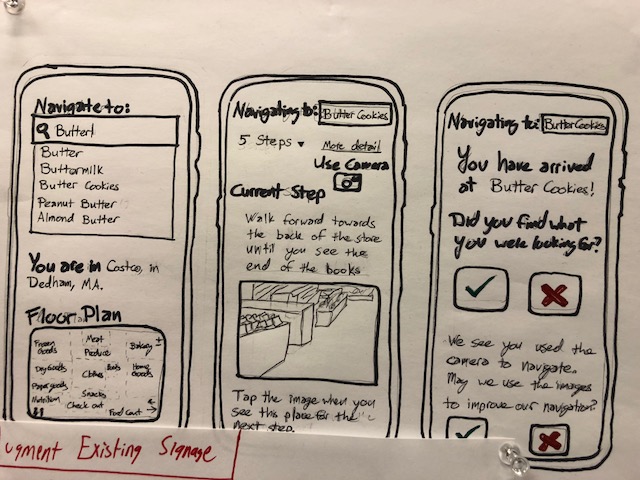 Navigate to:
Butter|
Butter
Buttermilk
Butter Cookies
Peanut Butter
Almond Butter
You are in Costco, in
Dedham, MA.
Floor Plan
Frozen Goods
Meat
Produce
Bakery
Dry Goods
Clothes
Home Goods
Paper goods
Nutrition
Snacks
Check out
Food Court
Navigating to: Butter Cookies
5 Steps ▾ More detail
Use Camera
Current Step
Walk forward towards
the back of the store
until you see the
end of the books
Tap the image when you
see this place for the
next step.
Navigating to: Butter Cookies
You have arrived
at Butter Cookies!
Did you find what
you were looking for?
We see you used the
camera to navigate.
May we use the images
to improve our navigation?
ugment Existing Signage